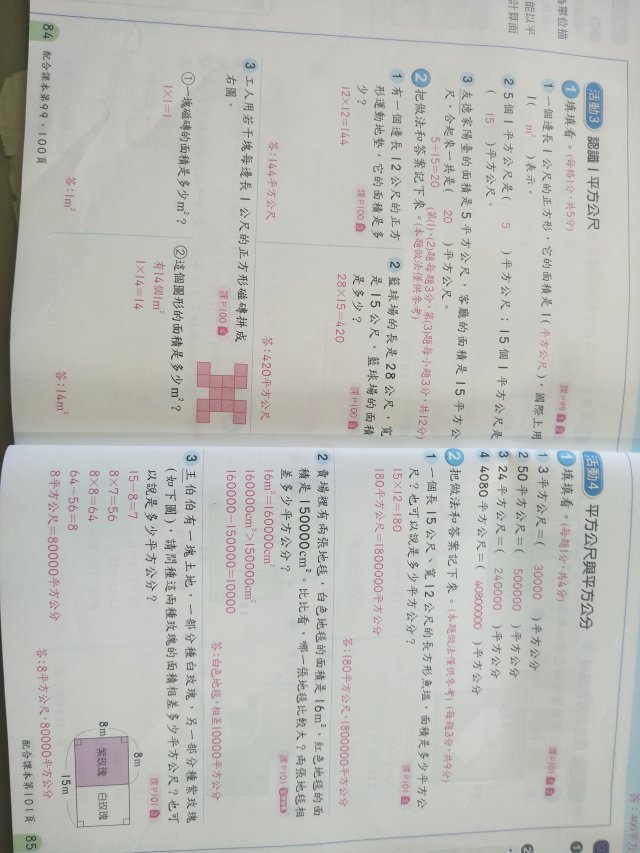 活動3 認識1平方公尺
1 填填看。(每格1分,共5分)
1 一個邊長1公尺的正方形,它的面積是1(平方公尺),國際上用
1( m² )表示。
課P99
2 5個1平方公尺是( 5 )平方公尺;15個1平方公尺是
( 15 )平方公尺。
3 友德家陽臺的面積是5平方公尺,客廳的面積是15平方公
尺,合起來一共是( 20 )平方公尺。
5+15=20
2 把做法和答案記下來。(本題做法僅供參考)
(第(1)、(2)題每題3分,第(3)題每小題3分,共12分)
1 有一個邊長12公尺的正方
形運動地墊,它的面積是多
少?
課P100
12×12=144
答:144平方公尺
2 籃球場的長是28公尺,寬
是15公尺,籃球場的面積
是多少?
課P100
28×15=420
答:420平方公尺
3 工人用若干塊每邊長1公尺的正方形磁磚拼成
右圖。
課P100
①一塊磁磚的面積是多少m²?
1×1=1
答:1m²
②這個圖形的面積是多少m²?
有14個1m²
1×14=14
答:14m²
84 配合課本第99、100頁
活動4 平方公尺與平方公分
1 填填看。(每題1分,共4分)
課P101
1 3平方公尺=( 30000 )平方公分
2 50平方公尺=( 500000 )平方公分
3 24平方公尺=( 240000 )平方公分
4 4080平方公尺=( 40800000 )平方公分
2 把做法和答案記下來。(本題做法僅供參考)(每題3分,共9分)
1 一個長15公尺、寬12公尺的長方形魚塭,面積是多少平方公
尺?也可以說是多少平方公分?
課P101
15×12=180
180平方公尺=1800000平方公分
答:180平方公尺,1800000平方公分
2 賣場裡有兩張地毯,白色地毯的面積是16m²,紅色地毯的面
積是150000cm²。比比看,哪一張地毯比較大?兩張地毯相
差多少平方公分?
課P101
16m²=160000cm²
160000cm²>150000cm²
160000-150000=10000
答:白色地毯,相差10000平方公分
3 王伯伯有一塊土地,一部分種白玫瑰,另一部分種紫玫瑰
(如下圖),請問種這兩種玫瑰的面積相差多少平方公尺?也可
以說是多少平方公分?
課P101
15-8=7
8×7=56
8×8=64
64-56=8
8平方公尺=80000平方公分
8m
8m
紫玫瑰
白玫瑰
15m
答:8平方公尺,80000平方公分
配合課本第101頁 85